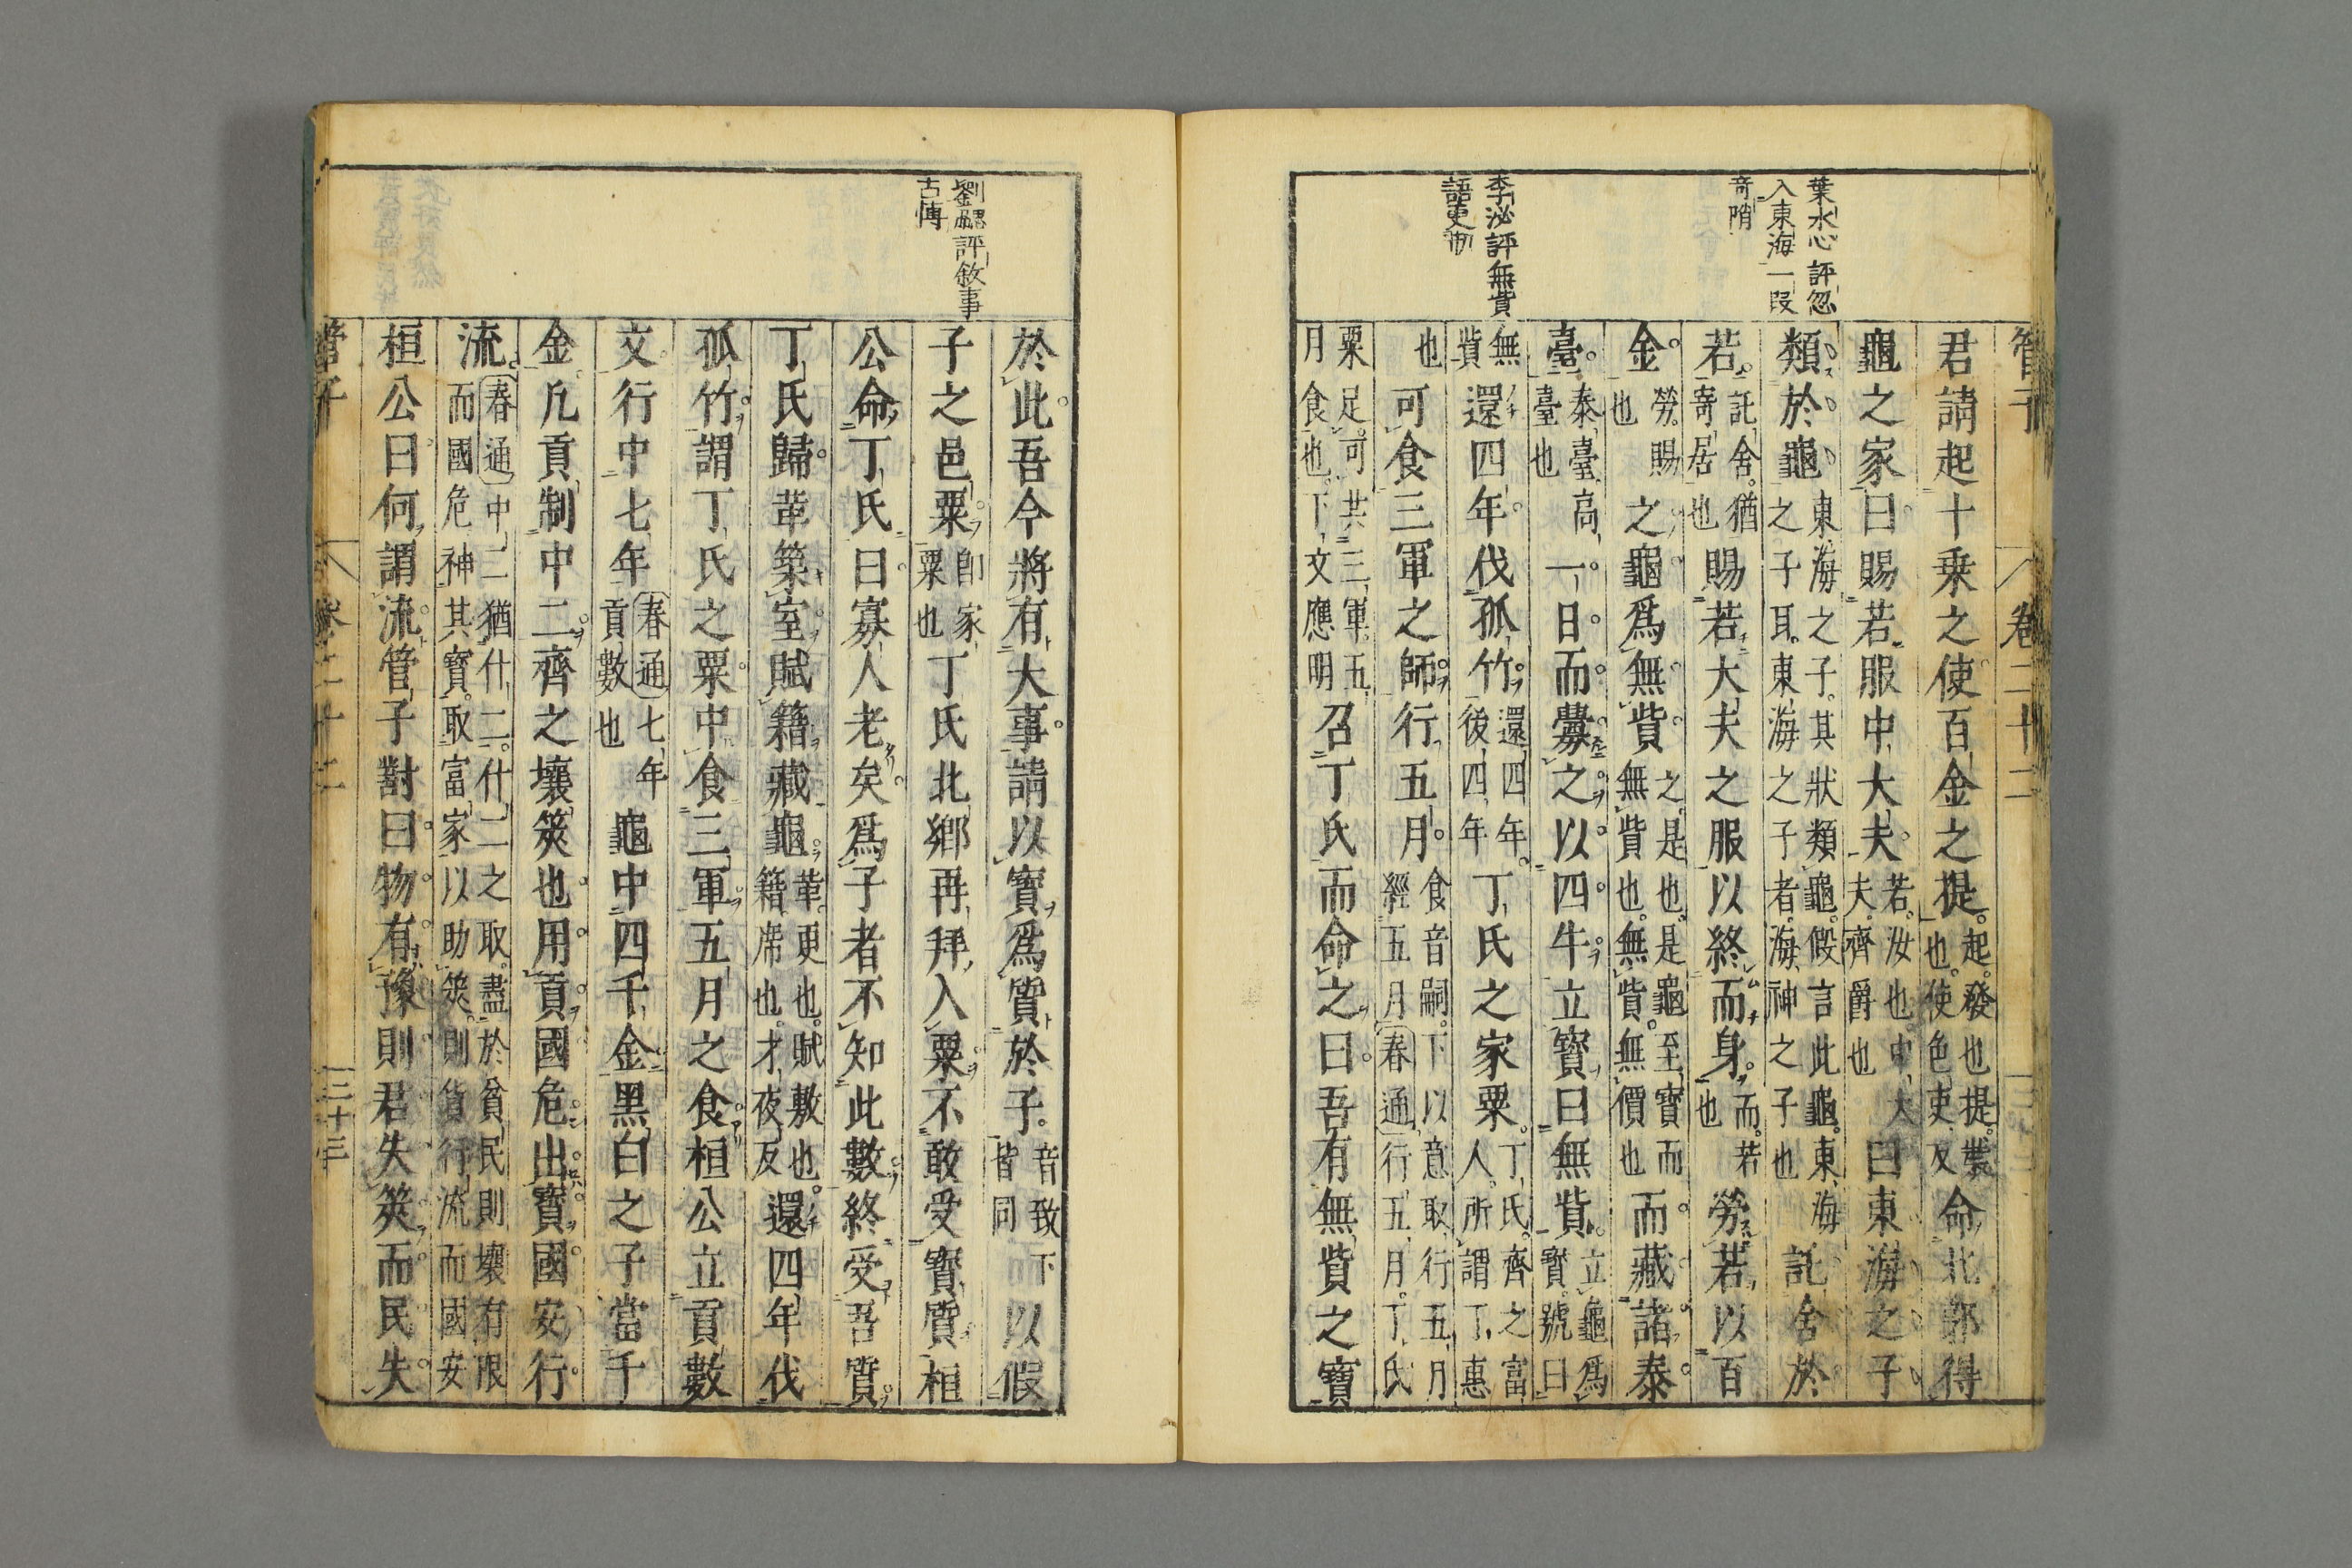 葉水心評忽
入東海一段
奇陗
李泌評無貲
語更陗
管子 卷二十二
君請起十乗之使百金之提起發也提裝也使色吏反命北郭得
龜之家曰賜若服中大夫若汝也中大夫齊爵也曰東海之子
類於龜東海之子其狀類龜假言此龜東海之子耳東海之子者海神之子也託舍於
若託舍猶寄居也賜若大夫之服以終而身而若也勞若以百
金勞賜也之龜爲無貲之是也是龜至寳而無貲也無貲無價也而藏諸泰
臺泰臺高臺也一日而釁之以四牛立寳曰無貲立龜爲寳號曰
無貲還四年伐孤竹還四年後四年丁氏之家粟丁氏齊之富人所謂丁惠
也可食三軍之師行五月食音嗣下以意取行五月經五月春通行五月丁氏
粟足可共三軍五月食也下文應明召丁氏而命之曰吾有無貲之寳
劉勰評敘事
古愽
於此吾今將有大事請以寳爲質於子音致下皆同以假
子之邑粟卽家粟也丁氏北鄉再拜入粟不敢受寳質桓
公命丁氏曰寡人老矣爲子者不知此數終受吾質
丁氏歸革築室賦籍藏龜革更也賦敷也籍席也才夜反還四年伐
孤竹謂丁氏之粟中食三軍五月之食桓公立貢數
文行中七年春通七年貢數也龜中四千金黑白之子當千
金凡貢制中二齊之壤筴也用貢國危出寳國安行
流春通中二猶什二什二之取盡於貧民則壤有限而國危神其寳取富家以助筴則貨行流而國安
桓公曰何謂流管子對曰物有豫則君失筴而民失
管子 卷二十二 三十三